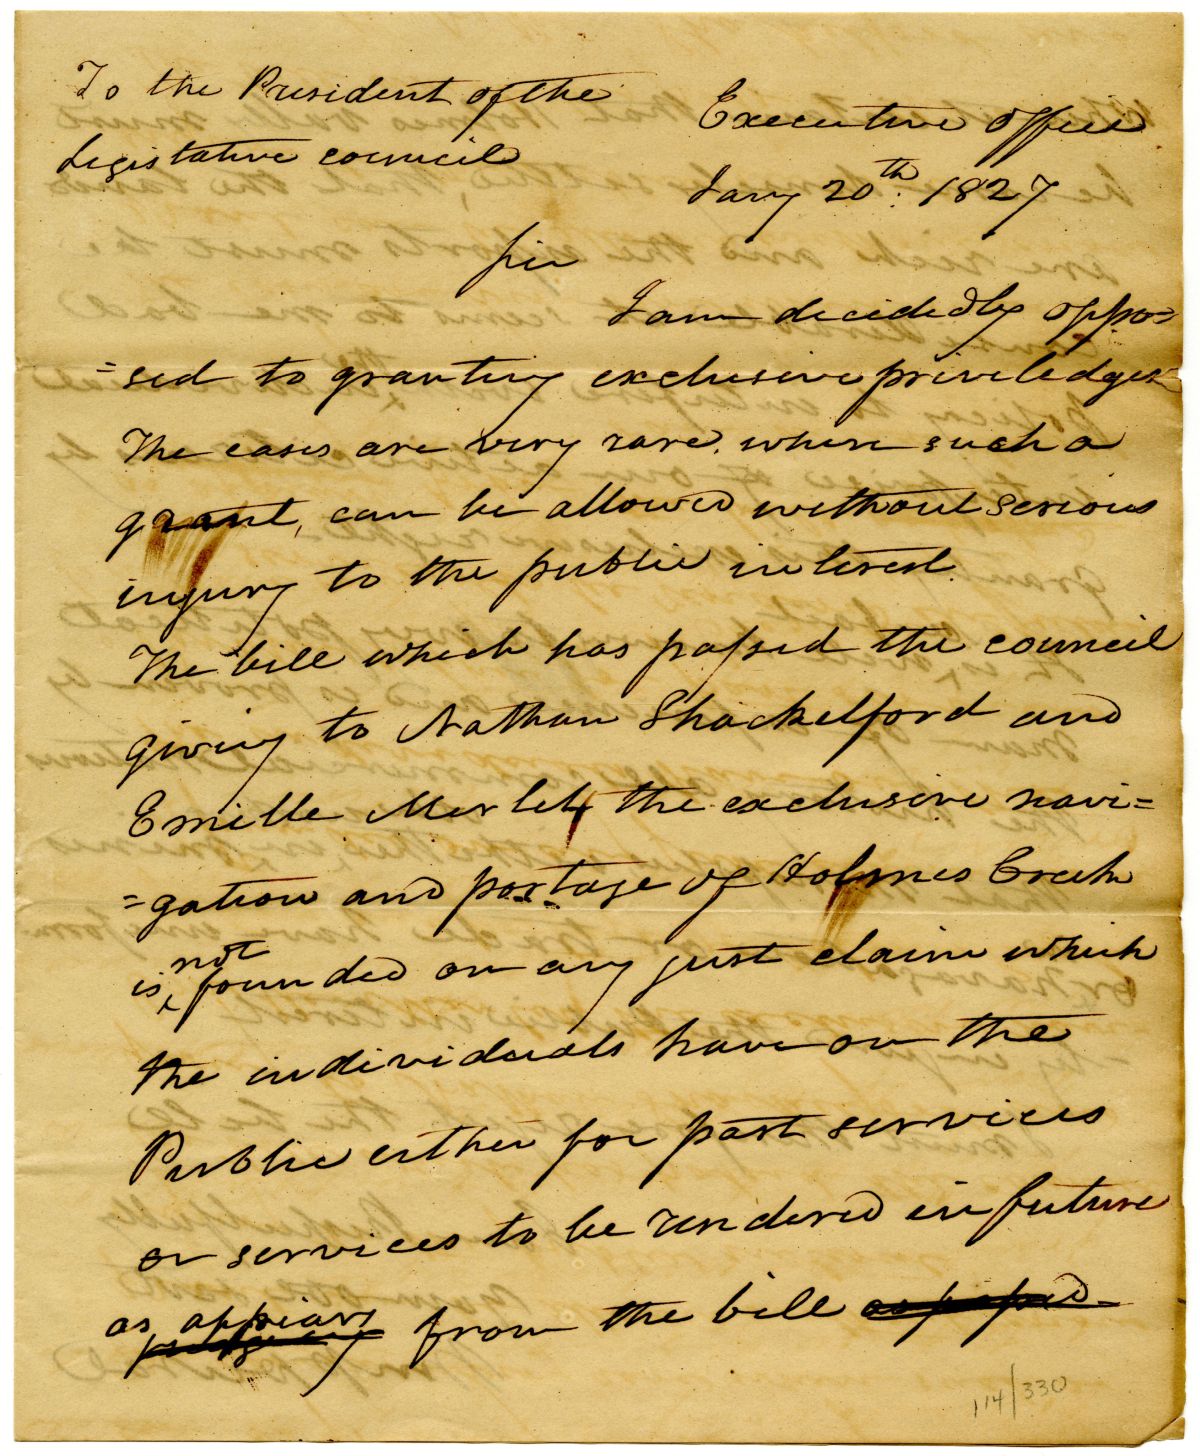 To the President of the
Legislative council
Executive office
Jany 20th. 1827
Sir
I am decidedly oppo=
=sed to granting exclusive priviledges
The cases are very rare, where such a
grant, can be allowed without serious
injury to the public interest.
The bill which has passed the council
giving to Nathan Shackelford and
Emille Merlet, the exclusive navi=
=gation and portage of Holmes Creek
is not founded on any just claim which
the individuals have on the
Public either for past services
or services to be rendered in future
as appears from the bill as passed
114/330